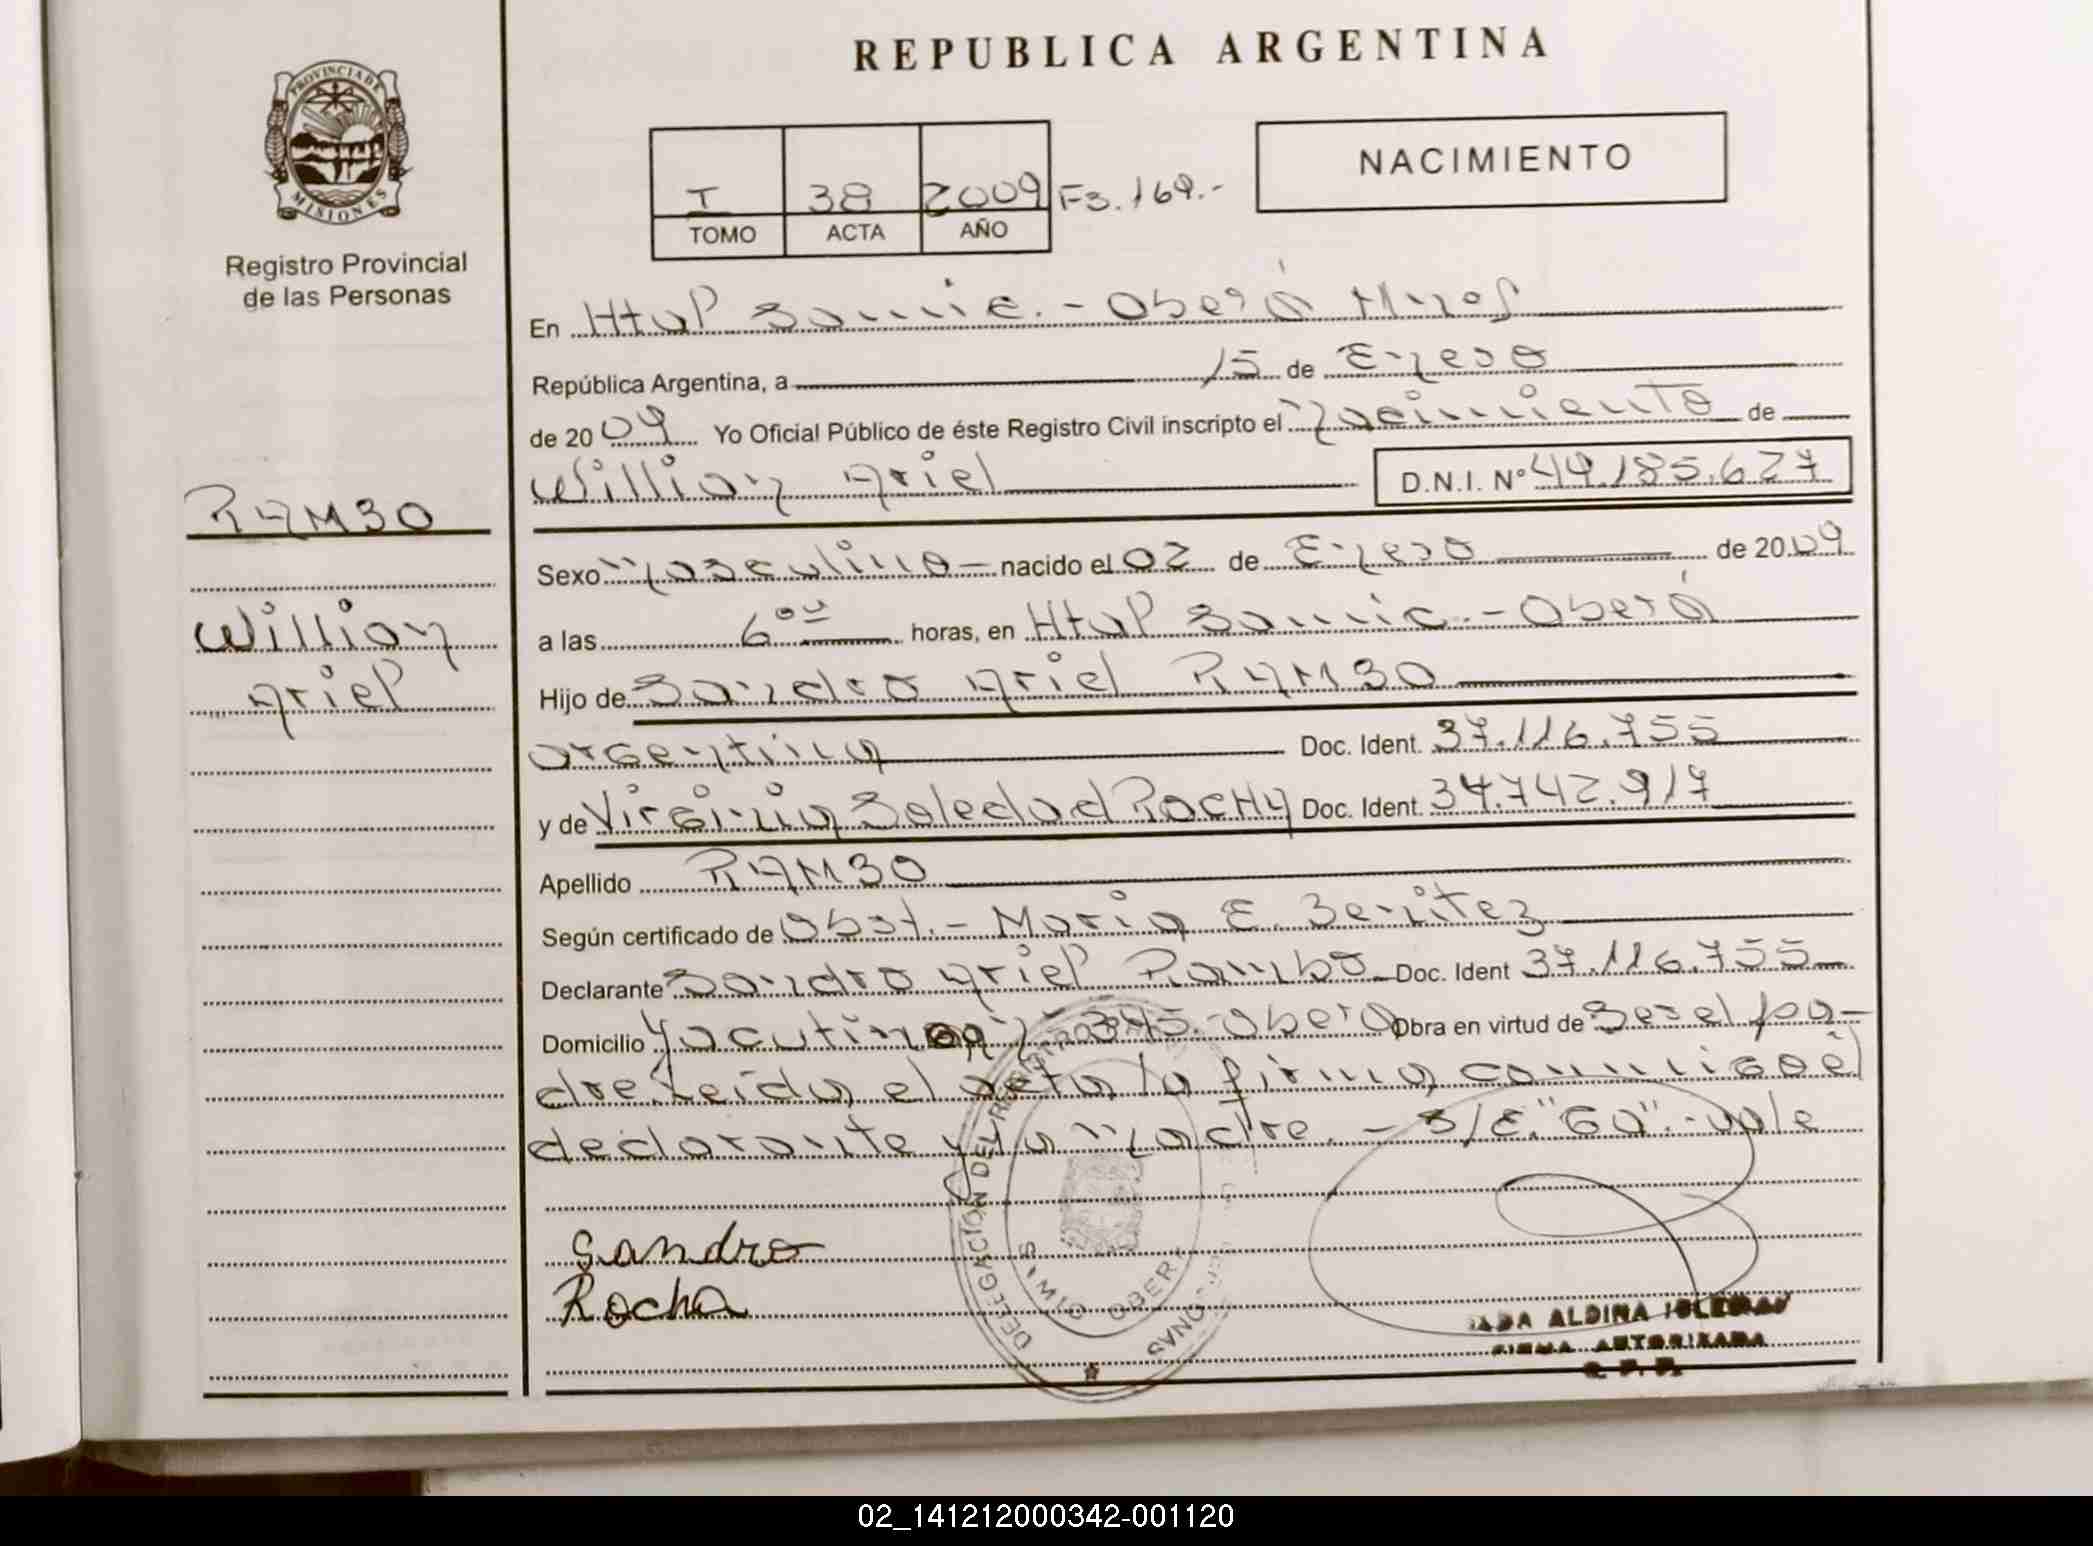 REPUBLICA ARGENTINA
PROVINCIA DE
MISIONES
Registro Provincial
de las Personas
I 38 2009 F3.169.-
TOMO ACTA AÑO
NACIMIENTO
En Htal Samic.- Oberá Mnes
República Argentina, a 15 de Enero
de 2009 Yo Oficial Público de éste Registro Civil inscripto el Nacimiento de
Willian Ariel D.N.I. Nº 49.185.627
RAMBO
Willian
Ariel
Sexo Masculino - nacido el 02 de Enero de 2009
a las 6 ºº horas, en Htal Samic.- Oberá
Hijo de Sandro Ariel RAMBO
argentina Doc. Ident. 37.116.755
y de Virginia Soledad ROCHA Doc. Ident. 34.742.917
Apellido RAMBO
Según certificado de Obst.- Maria E. Benitez
Declarante Sandro Ariel Rambo - Doc. Ident 37.116.755
Domicilio Yacutinga 345.- Oberá Obra en virtud de Ser el pa-
dre. Leida el acta la firma conmigo el
declarante y la Madre. - S/E. "GA".- vale
Sandro
Rocha
DELEGACION DEL REGISTRO
OBERA
ADA ALDINA IGLESIAS
FIRMA AUTORIZADA
02_141212000342-001120